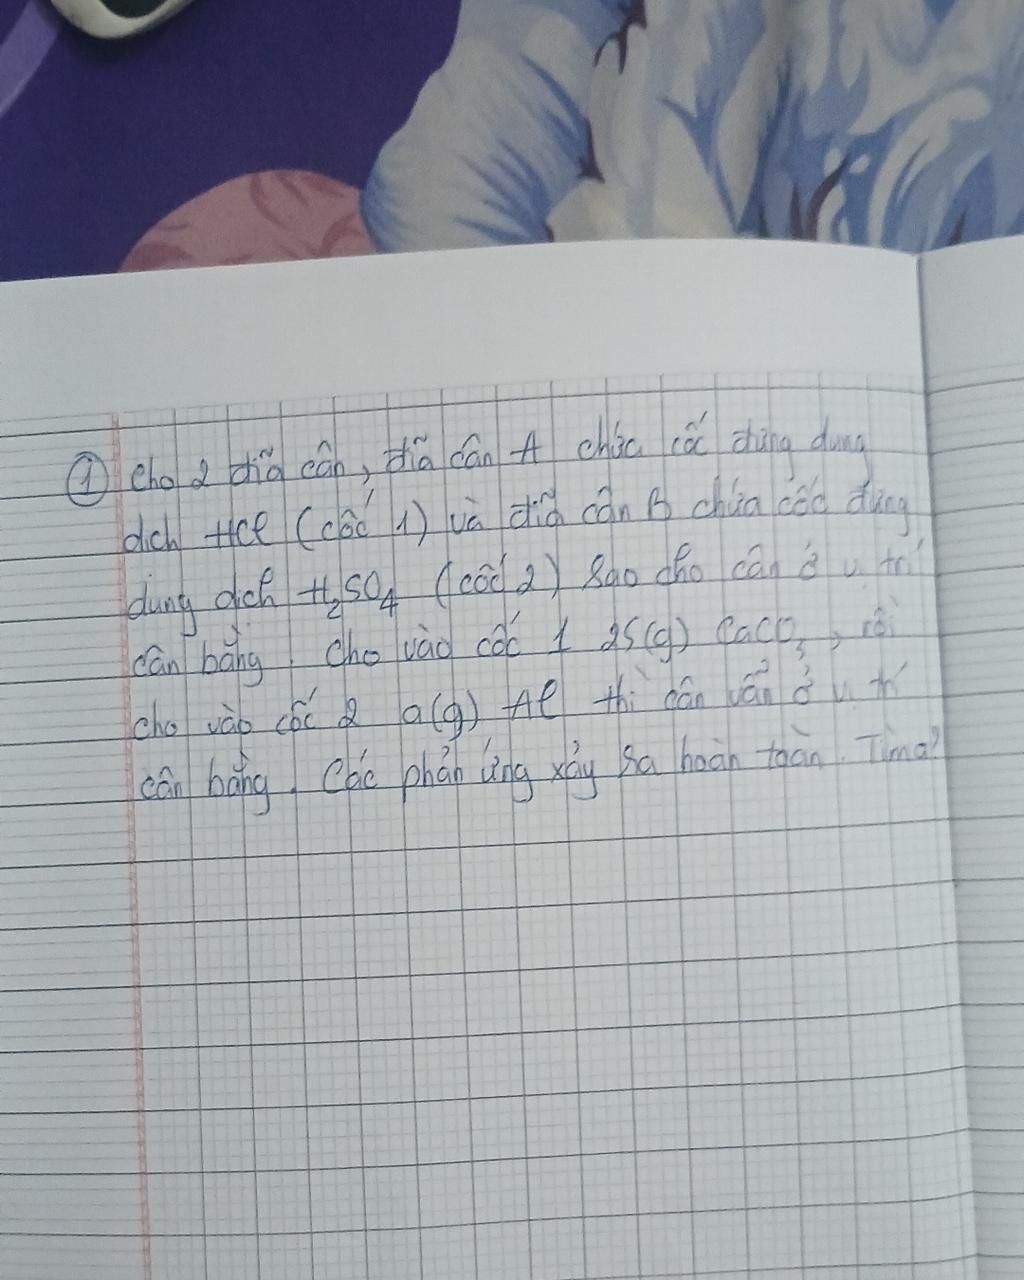 ① Cho 2 đĩa cân, đĩa cân A chứa cốc đựng dung
dịch HCl (cốc 1) và đĩa cân B chứa cốc đựng
dung dịch H₂SO₄ (cốc 2) sao cho cân ở vị trí
cân bằng. Cho vào cốc 1 25(g) CaCO₃, rồi
cho vào cốc 2 a(g) Al thì cân vẫn ở vị trí
cân bằng. Các phản ứng xảy ra hoàn toàn. Tìm a?